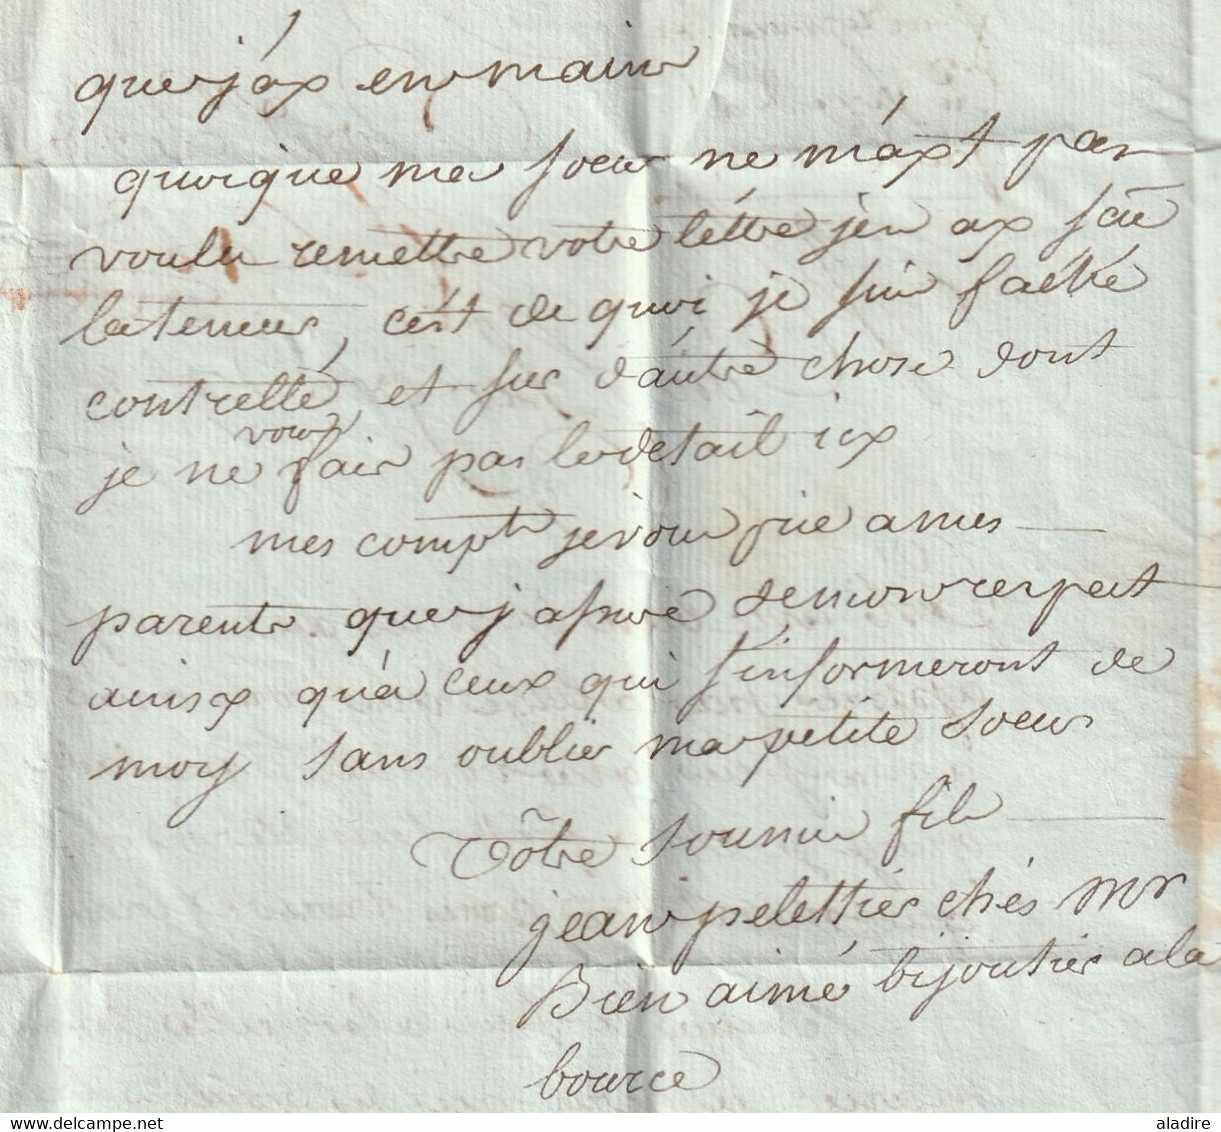 que j'ay en main
quoique ma soeur ne m'ayt pas
voulu remettre votre léttre j'en ay scu
la teneur, c'ést de quoi je suis faché
contre elle, et sur d'autre chose dont
je ne vous fais pas le detail icy
mes compts je vous prie a mes
parents que j'assure de mon respect
ainsy qu'a ceux qui s'informeront de
moy sans oublier ma petite soeur
Vôtre soumis fils
jean pelettier chés Mr
Bien aimé bijoutier a la
bource
aladire